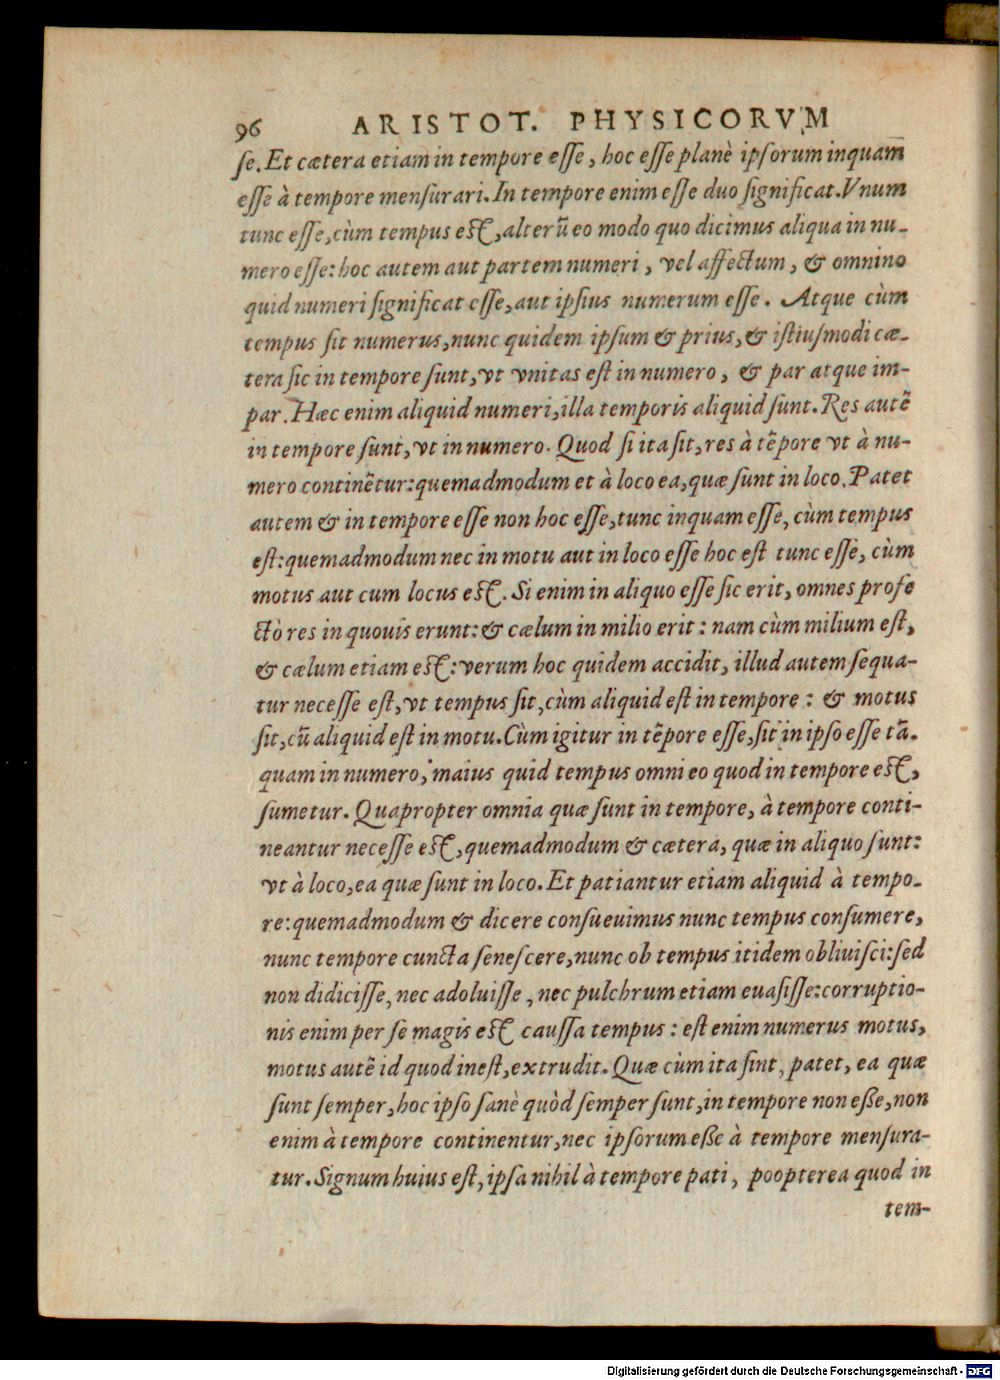 96 ARISTOT. PHYSICORVM
ſe. Et cætera etiam in tempore eſſe, hoc eſſe planè ipſorum inquam
eſſe à tempore menſurari. In tempore enim eſſe duo ſignificat. Vnum
tunc eſſe, cùm tempus eſt, alterũ eo modo quo dicimus aliqua in nu-
mero eſſe: hoc autem aut partem numeri, vel affectum, & omnino
quid numeri ſignificat eſſe, aut ipſius numerum eſſe. Atque cùm
tempus ſit numerus, nunc quidem ipſum & prius, & iſtiuſmodi cæ-
tera ſic in tempore ſunt, vt vnitas eſt in numero, & par atque im-
par. Hæc enim aliquid numeri, illa temporis aliquid ſunt. Res autẽ
in tempore ſunt, vt in numero. Quod ſi ita ſit, res à tẽpore vt à nu-
mero continẽtur: quemadmodum et à loco ea, quæ ſunt in loco. Patet
autem & in tempore eſſe non hoc eſſe, tunc inquam eſſe, cùm tempus
eſt: quemadmodum nec in motu aut in loco eſſe hoc eſt tunc eſſe, cùm
motus aut cum locus eſt. Si enim in aliquo eſſe ſic erit, omnes profe
ctò res in quouis erunt: & cælum in milio erit: nam cùm milium eſt,
& cælum etiam eſt: verum hoc quidem accidit, illud autem ſequa-
tur neceſſe eſt, vt tempus ſit, cùm aliquid eſt in tempore: & motus
ſit, cũ aliquid eſt in motu. Cùm igitur in tẽpore eſſe, ſit in ipſo eſſe tã-
quam in numero, maius quid tempus omni eo quod in tempore eſt,
ſumetur. Quapropter omnia quæ ſunt in tempore, à tempore conti-
neantur neceſſe eſt, quemadmodum & cætera, quæ in aliquo ſunt:
vt à loco, ea quæ ſunt in loco. Et patiantur etiam aliquid à tempo-
re: quemadmodum & dicere conſueuimus nunc tempus conſumere,
nunc tempore cuncta ſeneſcere, nunc ob tempus itidem obliuiſci: ſed
non didiciſſe, nec adoluiſſe, nec pulchrum etiam euaſiſſe: corruptio-
nis enim per ſe magis eſt cauſſa tempus: eſt enim numerus motus,
motus autẽ id quod ineſt, extrudit. Quæ cùm ita ſint, patet, ea quæ
ſunt ſemper, hoc ipſo ſanè quòd ſemper ſunt, in tempore non eße, non
enim à tempore continentur, nec ipſorum eße à tempore menſura-
tur. Signum huius eſt, ipſa nihil à tempore pati, poopterea quod in
tem-
Digitalisierung gefördert durch die Deutsche Forschungsgemeinschaft - DFG